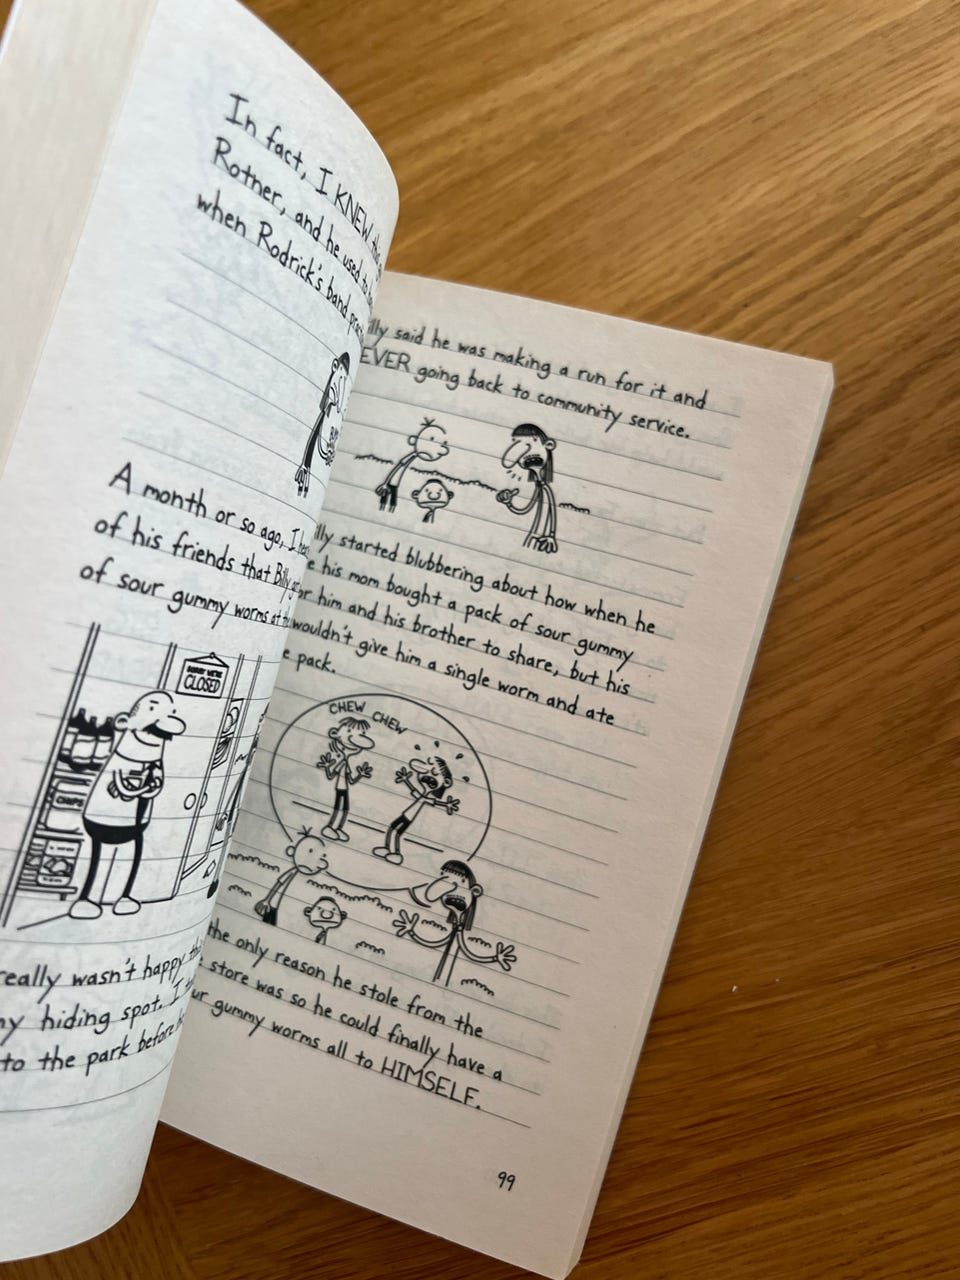 In fact, I KNEW this
Rotner, and he used to
when Rodrick's band
A month or so ago, I
of his friends that Billy
of sour gummy worms at
SORRY WE'RE
CLOSED
CHIPS
really wasn't happy
hiding spot. I
to the park before
said he was making a run for it and
going back to community service.
started blubbering about how when he
his mom bought a pack of sour gummy
him and his brother to share, but his
wouldn't give him a single worm and ate
pack.
CHEW CHEW
the only reason he stole from the
store was so he could finally have a
gummy worms all to HIMSELF.
99